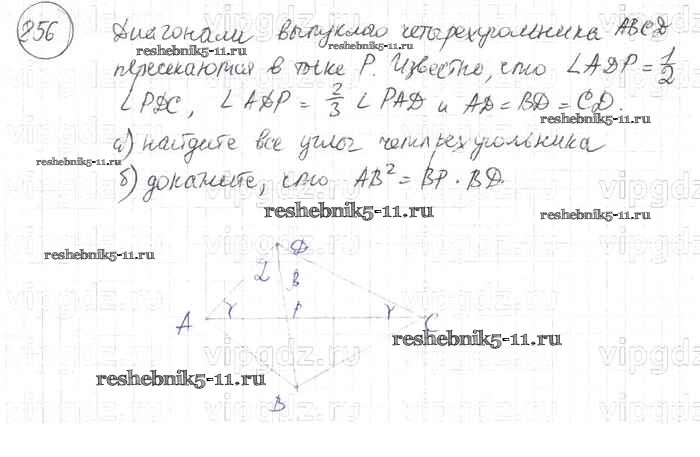 256
Диагонали выпуклого четырехугольника ABCD
reshebnik5-11.ru reshebnik5-11.ru
пересекаются в точке P. Известно, что ∠ADP = 1/2
∠PDC, ∠ADP = 2/3 ∠PAD и AD = BD = CD.
reshebnik5-11.ru
а) найдите все углы четырехугольника
reshebnik5-11.ru
б) докажите, что AB² = BP · BD.
vipgdz.ru
reshebnik5-11.ru
reshebnik5-11.ru
reshebnik5-11.ru
D
2
B
γ P γ
A C
reshebnik5-11.ru
reshebnik5-11.ru
B